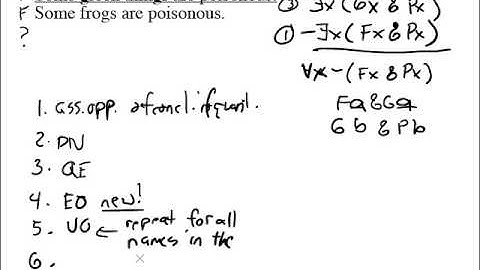 Some green things are poisonous.
F Some frogs are poisonous.
?
③ ∃x (Gx & Px)
① -∃x (Fx & Px)
∀x -(Fx & Px)
Fa & Ga
Gb & Pb
1. ass. opp. of concl. if quant.
2. DN
3. QE
4. EO new!
5. UO ← repeat for all
names in the
6.